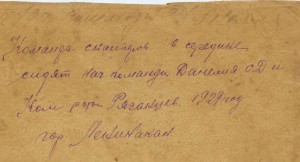 Команда скаигуль в середине
сидят нач команды Данелия СД и
Ком роты Рязанцев 1929 год
гор Ленинакан